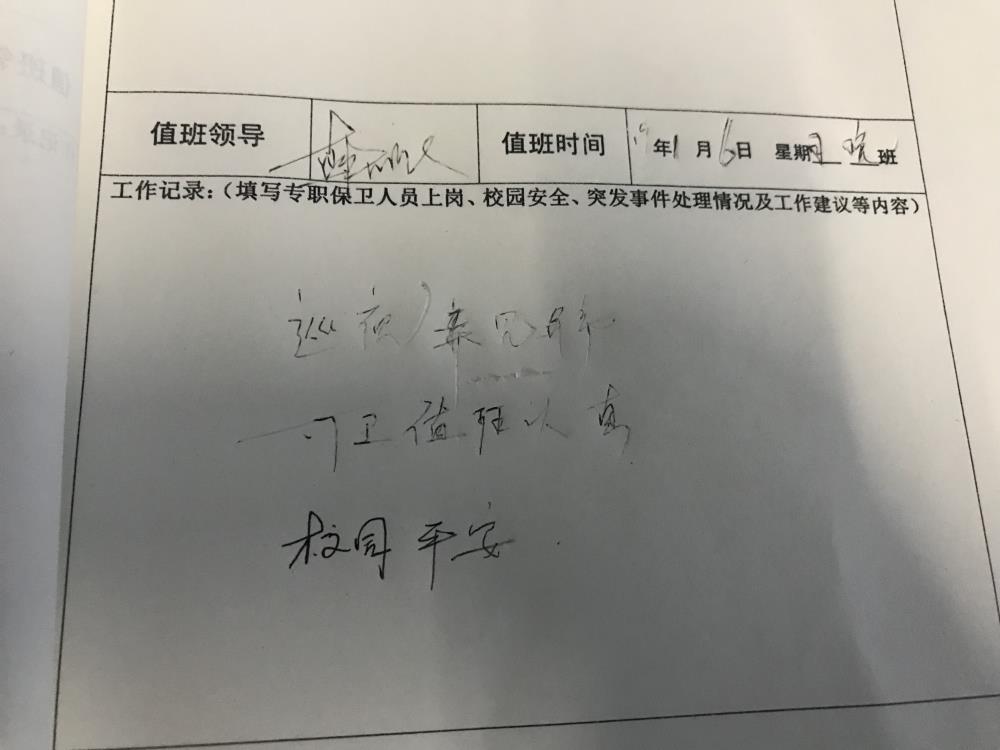 值班领导 值班时间 19年1月6日 星期日晚班
工作记录：（填写专职保卫人员上岗、校园安全、突发事件处理情况及工作建议等内容）
巡夜
门卫值班认真
校园平安.